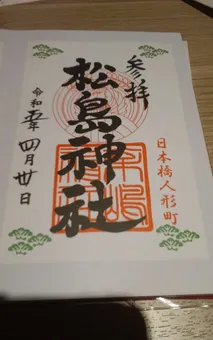 参拝
日本橋人形町
松島神社
令和五年
四月廿日